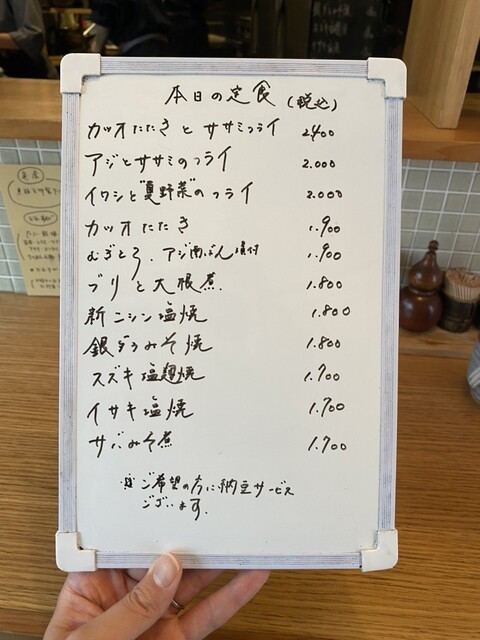 本日の定食 (税込)
カツオたたきとササミフライ 2400
アジとササミのフライ 2.000
イワシと"夏野菜"のフライ 2.000
カツオたたき 1.900
むぎとろ、アジ南ばん漬付 1.900
ブリと大根煮. 1.800
新ニシン塩焼 1.800
銀ダラみそ焼 1.800
スズキ塩麹焼 1.700
イサキ塩焼 1.700
サバみそ煮 1.700
ご希望の方に納豆サービス
ございます.